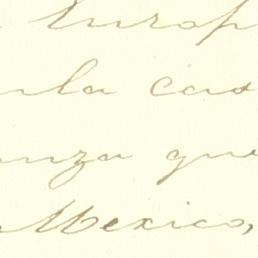 Europ
la cas
anza que
Mexico,